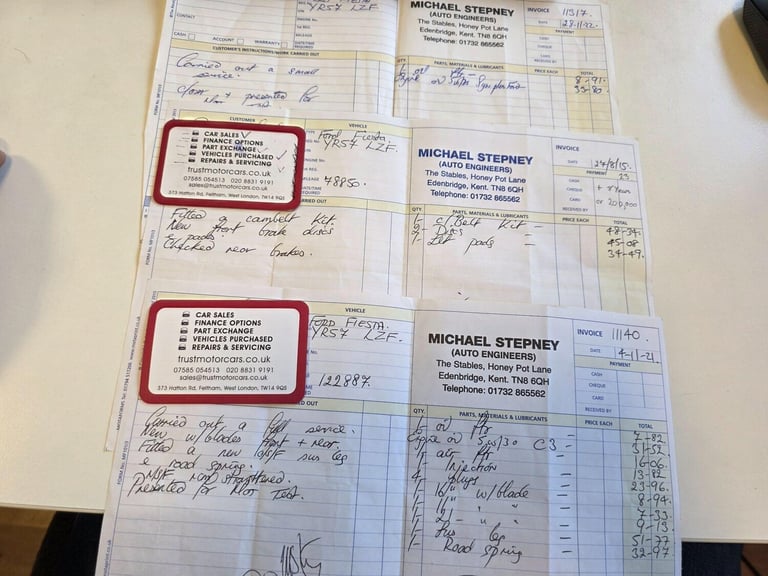 YR57 LZF
CONTACT
CASH
ACCOUNT
WARRANTY
RELEASE
DATE/TIME REQUIRED
CUSTOMER'S INSTRUCTIONS/WORK CARRIED OUT
Carried out a small
service.
presented for
MICHAEL STEPNEY
(AUTO ENGINEERS)
The Stables, Honey Pot Lane
Edenbridge, Kent. TN8 6QH
Telephone: 01732 865562
INVOICE
DATE
PAYMENT
CASH
CHEQUE
CARD
RECEIVED BY
QTY.
PARTS, MATERIALS & LUBRICANTS
PRICE EACH
TOTAL
8-91
33-80
CUSTOMER
VEHICLE
CAR SALES
FINANCE OPTIONS
PART EXCHANGE
VEHICLES PURCHASED
REPAIRS & SERVICING
trustmotorcars.co.uk
07585 054513 020 8831 9191
sales@trustmotorcars.co.uk
373 Hatton Rd, Feltham, West London, TW14 9QS
Ford Fiesta
YR57 LZF.
78850.
Fitted a cambelt Kit.
New front brake discs
& pads.
Checked rear brakes.
MICHAEL STEPNEY
(AUTO ENGINEERS)
The Stables, Honey Pot Lane
Edenbridge, Kent. TN8 6QH
Telephone: 01732 865562
INVOICE
DATE 24/8/15.
PAYMENT
CASH
CHEQUE
CARD or 200,000
RECEIVED BY
QTY.
PARTS, MATERIALS & LUBRICANTS
PRICE EACH
TOTAL
1- c/Belt Kit - 48-34
2- Discs - 45-08
1- Set pads - 34-49.
VEHICLE
CAR SALES
FINANCE OPTIONS
PART EXCHANGE
VEHICLES PURCHASED
REPAIRS & SERVICING
trustmotorcars.co.uk
07585 054513 020 8831 9191
sales@trustmotorcars.co.uk
373 Hatton Rd, Feltham, West London, TW14 9QS
FORD FIESTA.
YR57 LZF.
122887.
Carried out a full service.
New w/blades front + rear.
Fitted a new sus leg
& road spring.
Presented for MOT Test.
MICHAEL STEPNEY
(AUTO ENGINEERS)
The Stables, Honey Pot Lane
Edenbridge, Kent. TN8 6QH
Telephone: 01732 865562
INVOICE 11140.
DATE 4-11-21.
PAYMENT
CASH
CHEQUE
CARD
RECEIVED BY
QTY.
PARTS, MATERIALS & LUBRICANTS
PRICE EACH
TOTAL
oil 7-82
Engine oil 5w/30 C3 - 31-52
16-06.
Injection 13-82
4- plugs - 23-96.
w/blade - 8-94.
7-33
9-13
1- sus leg - 51-77
1- Road spring - 32-97.